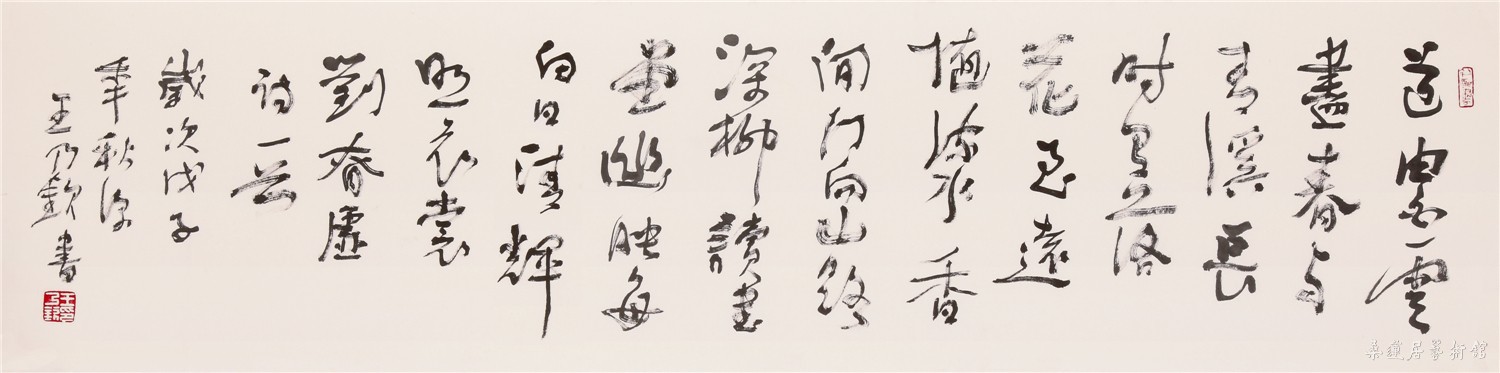 道由白雲
盡春与
青溪長
时有落
花至遠
隨流水香
閒门向山路
深柳讀書
堂幽映每
白日清輝
照衣裳
劉眘虛
诗一首
歲次戊子
年秋深
王乃欽書
桑蓮居藝術館